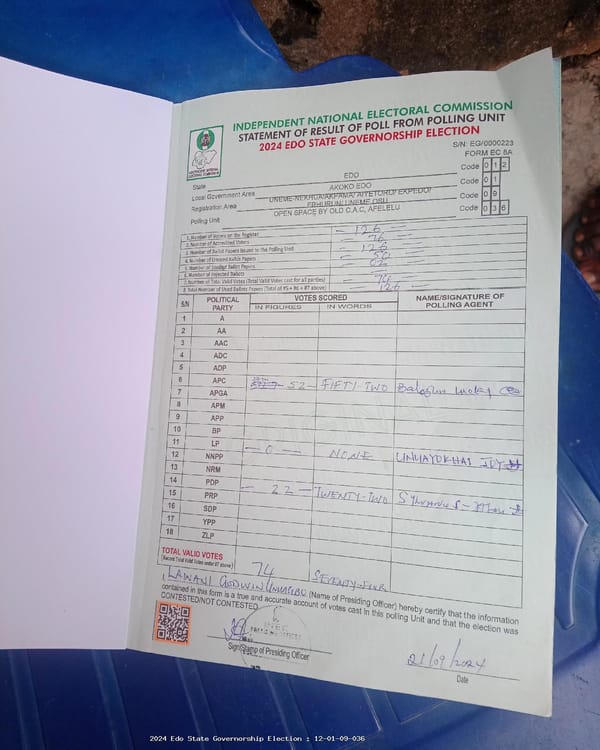 INDEPENDENT NATIONAL ELECTORAL COMMISSION
STATEMENT OF RESULT OF POLL FROM POLLING UNIT
2024 EDO STATE GOVERNORSHIP ELECTION
S/N: EG/0000223
FORM EC 8A
State EDO Code 012
Local Government Area AKOKO EDO Code 01
Registration Area UNEME-NEKHUA/AKPAMA/ AIYETORO/ EKPEDO/ ERHURUN/ UNEME OSU Code 09
Polling Unit OPEN SPACE BY OLD C.A.C, AFELELU Code 036
1. Number of Voters on the Register - 126 -
2. Number of Accredited Voters 76
3. Number of Ballot Papers Issued to the Polling Unit 126
4. Number of Unused Ballot Papers 50
5. Number of Spoiled Ballot Papers
6. Number of Rejected Ballots
7. Number of Total Valid Votes (Total Valid Votes cast for all parties) 74
8. Total Number of Used Ballot Papers (Total of #5 + #6 + #7 above) 126
S/N POLITICAL PARTY VOTES SCORED NAME/SIGNATURE OF POLLING AGENT
IN FIGURES IN WORDS
1 A
2 AA
3 AAC
4 ADC
5 ADP
6 APC 52 - FIFTY-TWO Balogun
7 APGA
8 APM
9 APP
10 BP
11 LP - 0 - NONE
12 NNPP
13 NRM
14 PDP - 22 - TWENTY-TWO
15 PRP
16 SDP
17 YPP
18 ZLP
TOTAL VALID VOTES 74 SEVENTY-FOUR
(Record Total Valid Votes under #7 above)
I, LAWANI GODWIN (Name of Presiding Officer) hereby certify that the information
contained in this form is a true and accurate account of votes cast in this polling Unit and that the election was
CONTESTED/NOT CONTESTED
INEC
PRESIDING OFFICER
Sign/Stamp of Presiding Officer
21/09/2024
Date
2024 Edo State Governorship Election : 12-01-09-036